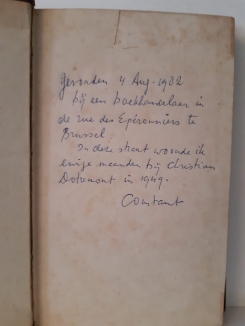 gevonden 4 Aug-1982
bij een boekhandelaar in
de rue des Eperonniers te
Brussel.
In deze straat woonde ik
enige maanden bij Christian
Dotremont in 1949.
Constant